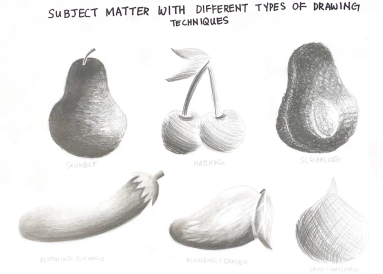 SUBJECT MATTER WITH DIFFERENT TYPES OF DRAWING
TECHNIQUES
SCUMBLE
HATCHING
SCRIBBLING
BLENDING / ERASER
CROSS-HATCHING